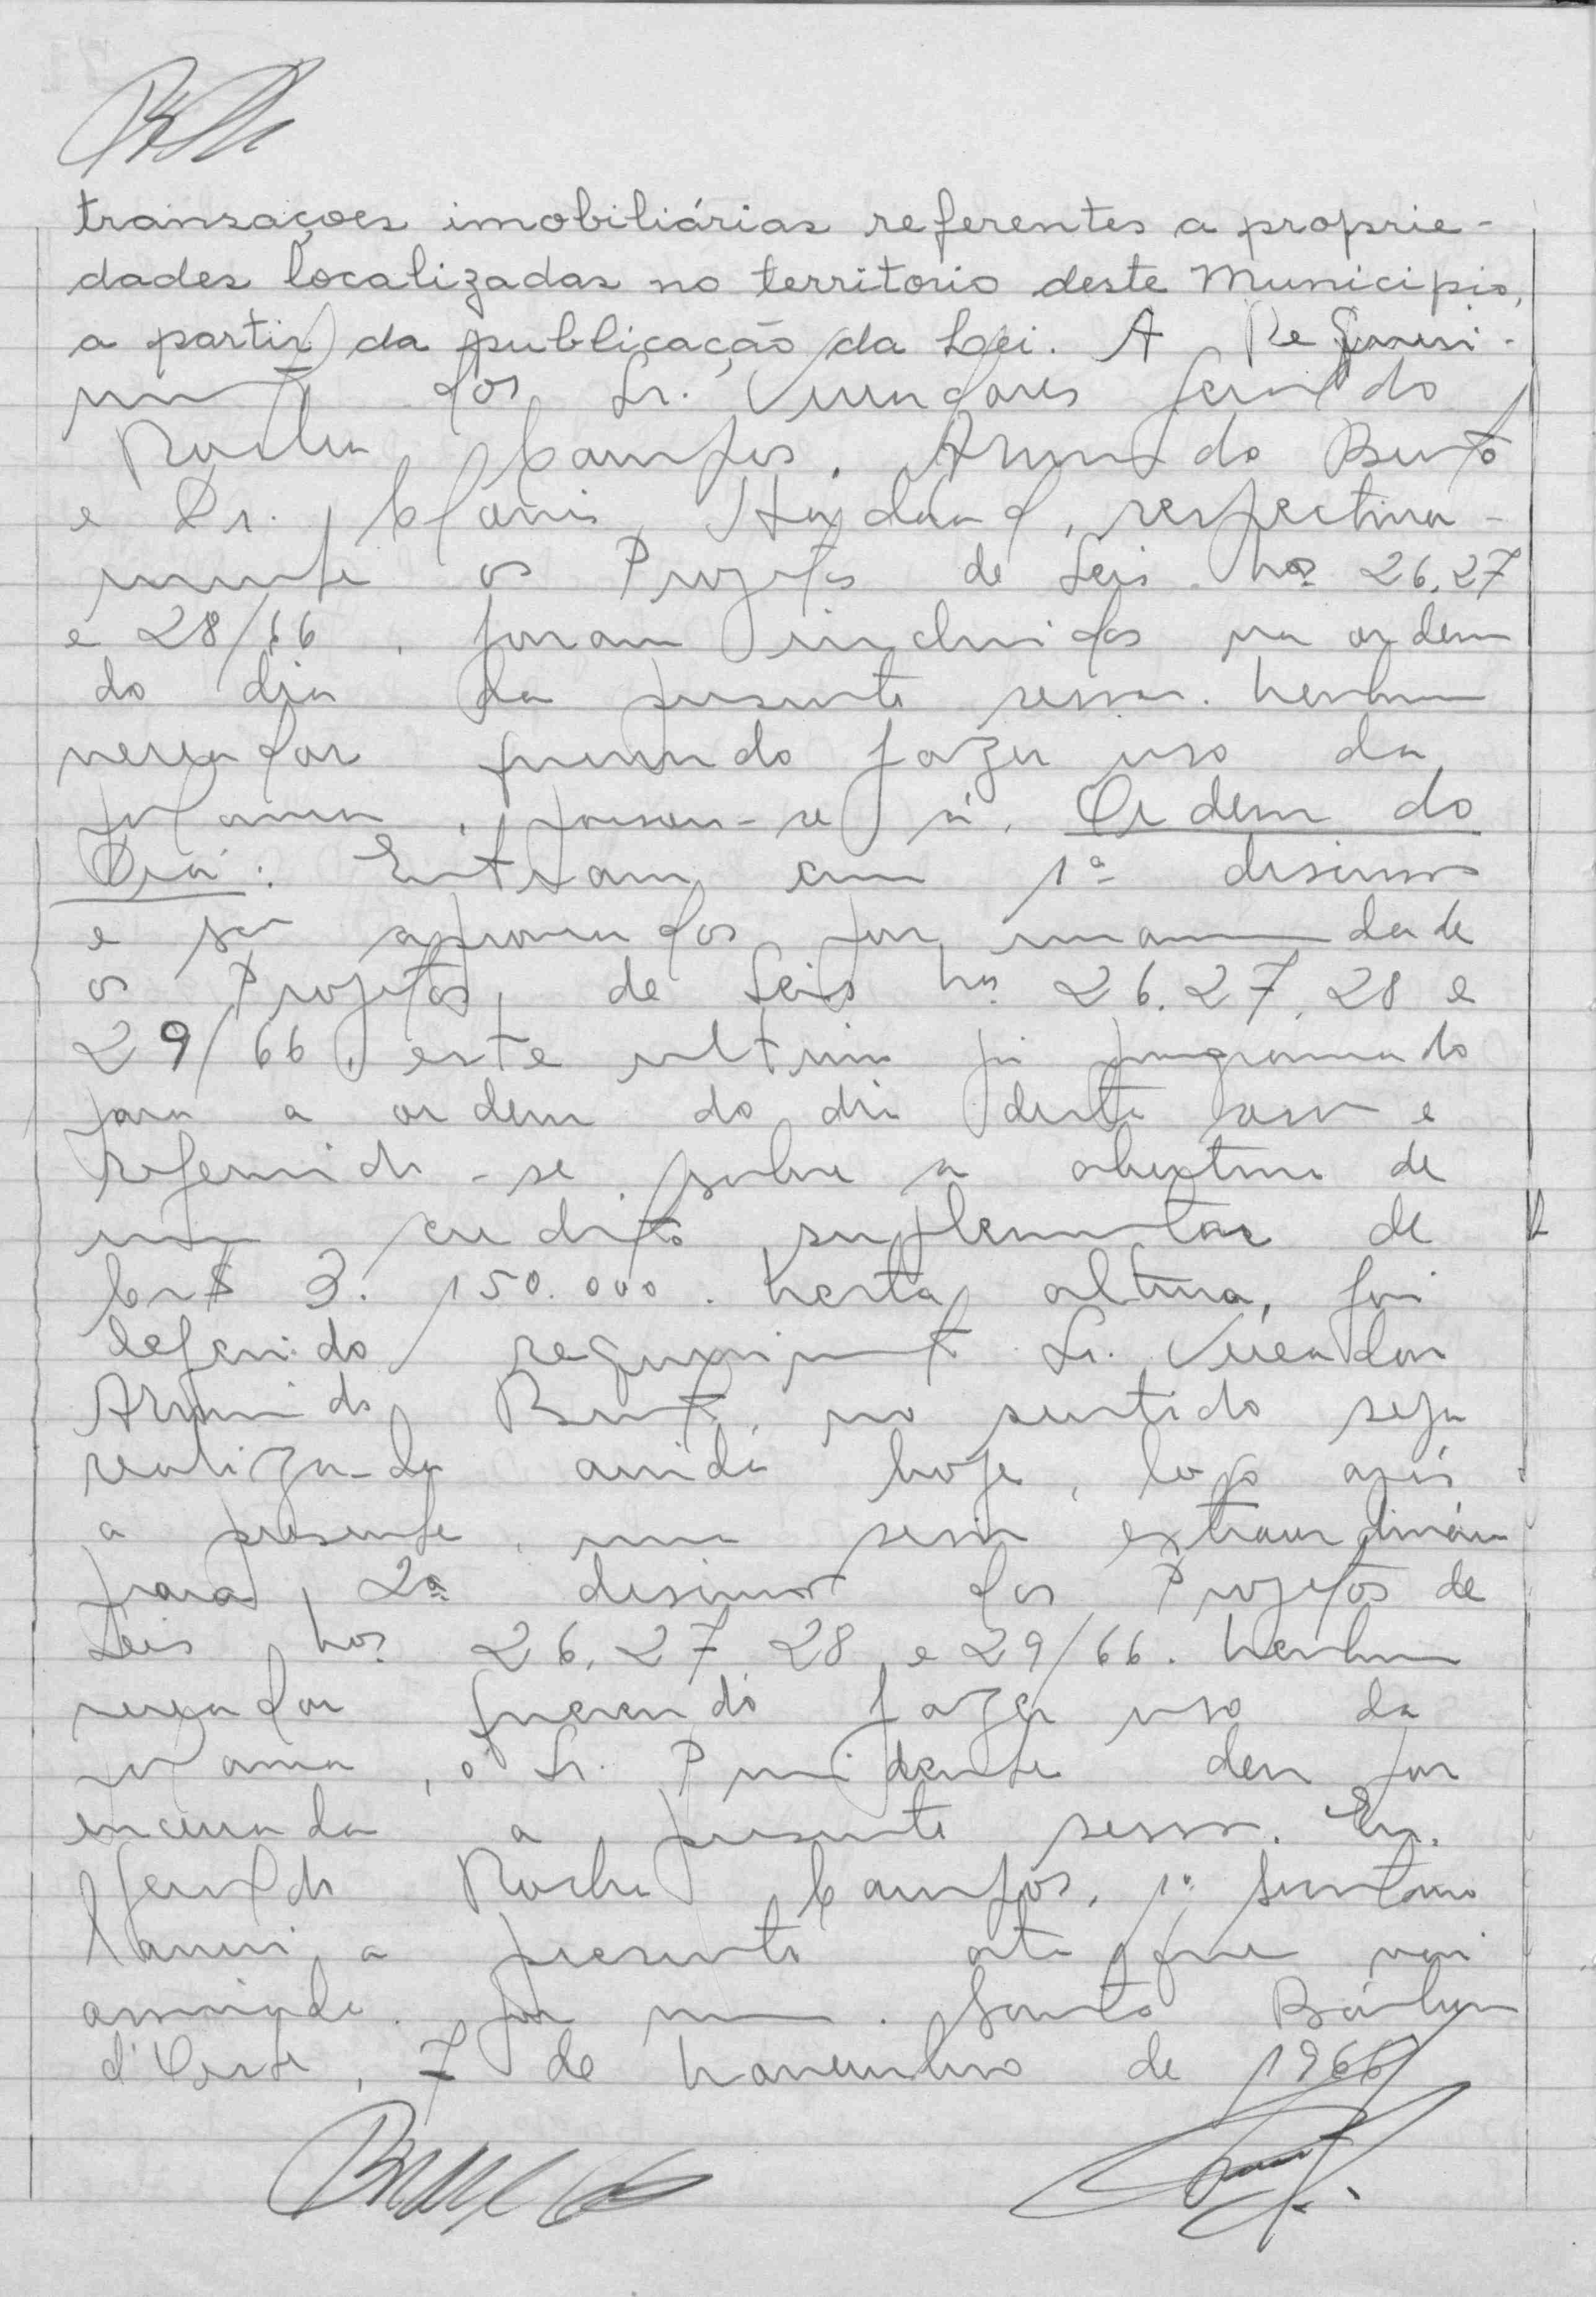 transaçoes imobiliárias referentes a proprie-
dades localizadas no territorio deste Municipio,
a partir da publicação da Lei. A Requeri-
mento dos Sr. Vereadores Geraldo
Rocha Campos, Armindo Bento
e Dr. Clovis Haddad, respectiva-
mente os Projetos de Leis nos 26, 27
e 28/66, foram incluidos na ordem
do dia da presente sessão. Nenhum
vereador querendo fazer uso da
palavra, passou-se à, Ordem do
Dia: Entram em 1ª discussão
e são aprovados por unanimidade
os Projetos, de Leis nos 26, 27, 28 e
29/66, este ultimo já programado
para a ordem do dia desta sessão e
referindo-se sobre a abertura de
um credito suplementar de
Cr$ 3.150.000. Nesta altura, foi
deferido requerimento Sr. Vereador
Armindo Bento, no sentido seja
realizada ainda hoje, logo após
a presente, uma sessão extraordinária
para 2ª discussão dos Projetos de
Leis nos 26, 27 28, e 29/66. Nenhum
vereador querendo fazer uso da
palavra, o Sr. Presidente deu por
encerrada a presente sessão. Eu,
Geraldo Rocha Campos, 1º Secretario
lavrei a presente ata que vai
assinada por mim. Santa Bárbara
d'Oeste, 7 de novembro de 1966